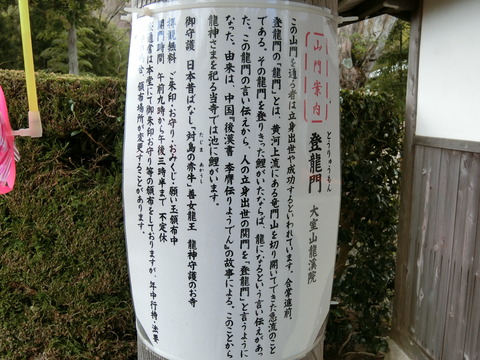 山門案内
とうりゅうもん
登龍門
大室山龍溪院
この山門を通る者は立身出世や成功するといわれています。合掌進前。
登龍門の「龍門」とは、黄河上流にある竜門山を切り開いてできた急流のこと
である。その龍門を登りきった鯉がいたならば、龍になるという言い伝えがあっ
た。この龍門の言い伝えから、人の立身出世の関門を「登龍門」と言うように
なった。由来は、中国『後漢書 李膺伝りようでん』の故事による。このことから
龍神さまを祀る当寺では池に鯉がいます。
たじま あかうし
御守護 日本昔ばなし「対島の赤牛」善女龍王 龍神守護のお寺
拝観無料 ご朱印・お守り・おみくじ・願い玉頒布中
開門時間 午前九時から午後三時半まで 不定休
通常は本堂にて御朱印お守り等の頒布をしておりますが、年中行持、法要
頒布場所が変更することがあります。